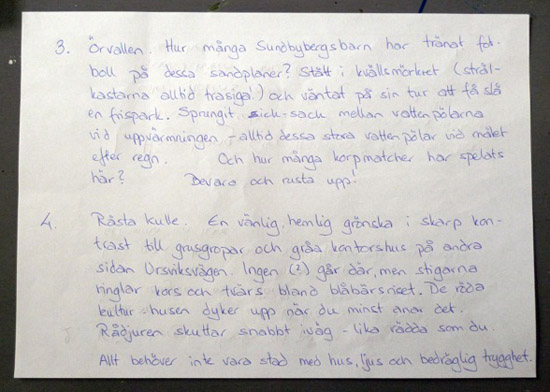 3. Örvallen. Hur många Sundbybergsbarn har tränat fot-
boll på dessa sandplaner? Stått i kvällsmörkret (strål-
kastarna alltid trasiga!) och väntat på sin tur att få slå
en frispark. Sprungit sick-sack mellan vattenpölarna
vid uppvärmningen - alltid dessa stora vattenpölar vid målet
efter regn. Och hur många korpmatcher har spelats
här? Bevara och rusta upp!
4. Råsta kulle. En vänlig, hemlig grönska i skarp kon-
trast till grusgropar och gråa kontorshus på andra
sidan Ursviksvägen. Ingen (?) går där, men stigarna
ringlar kors och tvärs bland blåbärsriset. De röda
kultur-husen dyker upp när du minst anar det.
Rådjuren skuttar snabbt iväg - lika rädda som du.
Allt behöver inte vara stad med hus, ljus och bedräglig trygghet.